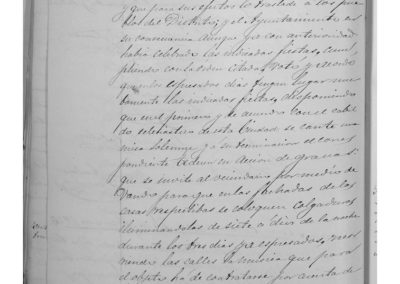 y que para sus efectos lo traslade a los pue
blos del Distrito; y el Ayuntamiento en
su consonancia aunque ya con anterioridad
había celebrado las indicadas fiestas, cum
pliendo con la orden citada, votó y acordó
que en los espresados dias tengan lugar nue
bamente las indicadas fiestas, disponiendo
que en el primero y de acuerdo con el cabil
do eclesiastico de esta Ciudad se cante una
misa solemne y a su terminacion el corres
pondiente Tedeum en accion de gracias:
que se invite al vecindario por medio de
vando para que en las fachadas de las
casas respectibas se coloquen colgaduras
iluminandolas de siete a diez de la noche
durante los tres dias pre espresados, recor
riendo las calles la musica que para
el objeto ha de contratarse por cuenta de